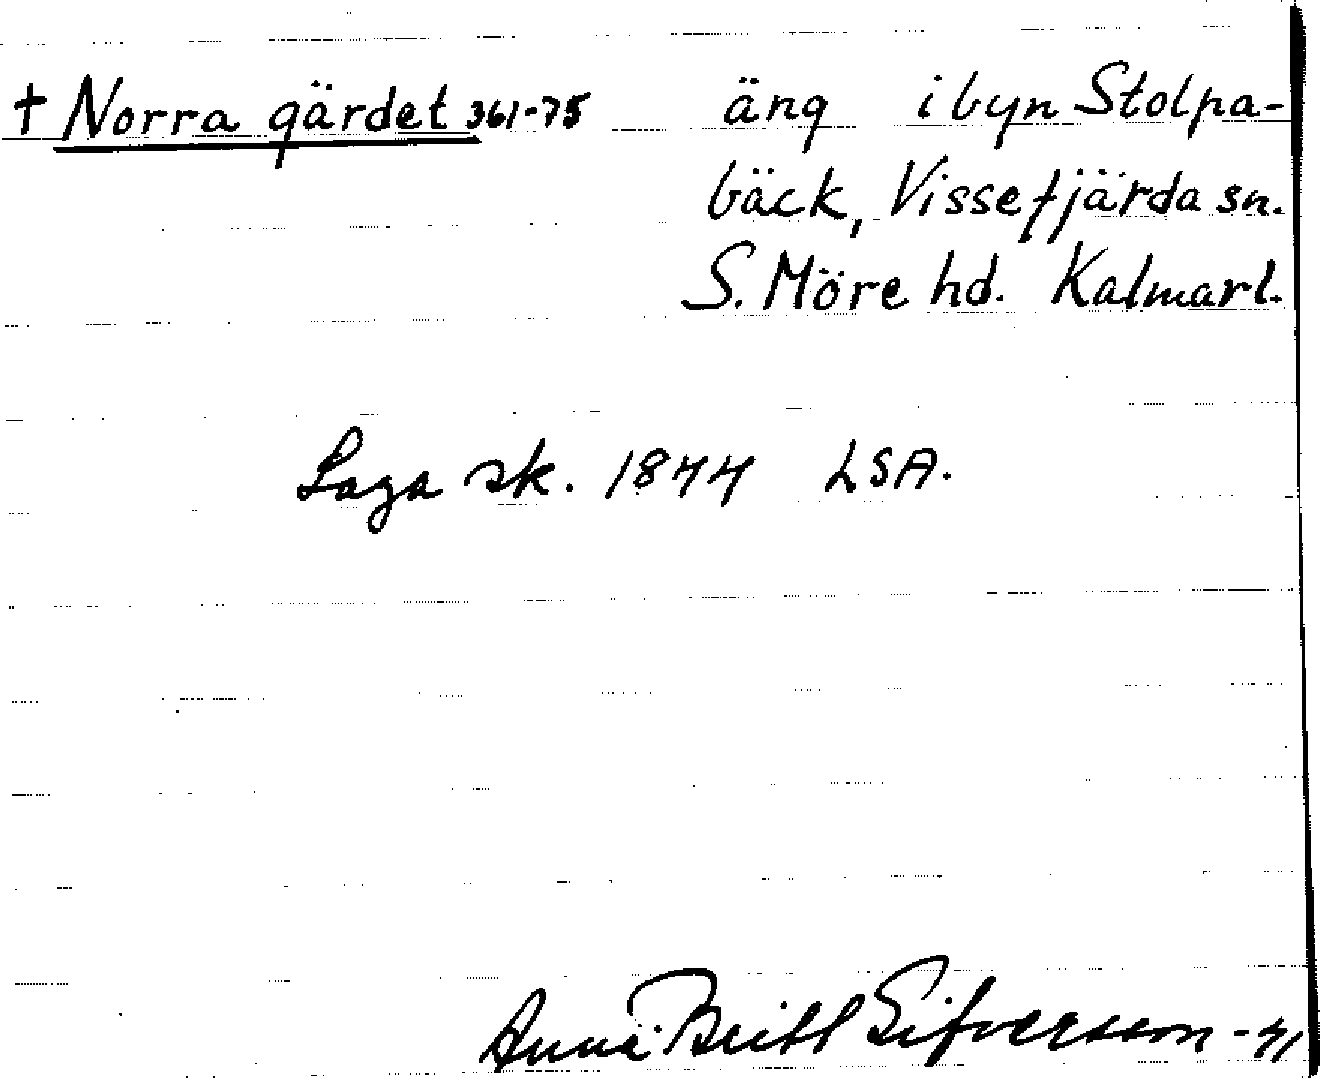 † Norra gärdet 361-75 äng i byn Stolpa-
bäck, Vissefjärda sn.
S. Möre hd. Kalmarl.
Laga sk. 1844 LSA.
Anna Britt Sifversson -41